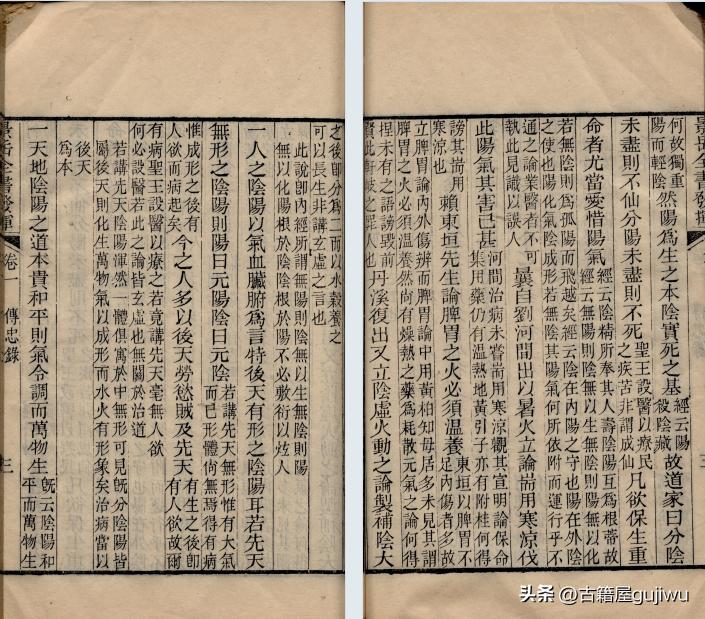 景岳全書發揮
何故獨重
陽而輕陰
然陽為生之本陰實死之基
經云陽
殺陰藏
故道家曰分陰
未盡則不仙分陽未盡則不死
聖王設醫以療民
之疾苦非謂成仙
凡欲保生重
命者尤當愛惜陽氣
經云陰精所奉其人壽陰陽互為根蒂故
經云無陽則陰無以生無陰則陽無以化
若無陰則為孤陽而飛越矣經云陰在內陽之守也陽在外陰
之使也陽化氣陰成形若無陰其陽氣何所依附而運行乎不
通之論業醫者不可
執此見識以誤人
曇自劉河間出以暑火立論耑用寒涼伐
此陽氣其害已甚
河間治病未嘗耑用寒涼觀其宣明論保命
集用藥仍有溫熱地黃引子亦有附桂何得
謗其耑用
寒涼也
賴東垣先生論脾胃之火必須溫養
東垣以脾胃不
足內傷者多故
立脾胃論內外傷辨而脾胃論中用黃柏知母居多未見其謂
脾胃之火必須溫養然尚有燥熱之藥為耗散元氣之論何得
捏未有之語謗毀前
賢此軒岐之罪人也
丹溪復出又立陰虛火動之論製補陰大
之後即分為二而以水穀養之
可以長生非講玄虛之言也
此說即內經所謂無陽則陰無以生無陰則陽
無以化陽根於陰陰根於陽不必敷衍以炫人
一人之陰陽以氣血臟腑為言特後天有形之陰陽耳若先天
無形之陰陽則陽曰元陽陰曰元陰
若講先天無形惟有大氣
而已形體尚無焉得有病
惟成形之後有
人欲而病起矣
今之人多以後天勞慾賊及先天
有生之後即
有人欲故爾
有病聖王設醫以療之若竟講先天毫無人欲
何必設醫若此之論皆玄虛也無關於治道
若講先天陰陽渾然一體俱寓於中無形可見旣分陰陽皆
屬後天則化生萬物氣以成形而水火有形象矣治病當以
後天
為本
一天地陰陽之道本貴和平則氣令調而萬物生
旣云陰陽和
平而萬物生
景岳全書發揮 卷一 傳忠錄 三
头条 @古籍屋gujiwu